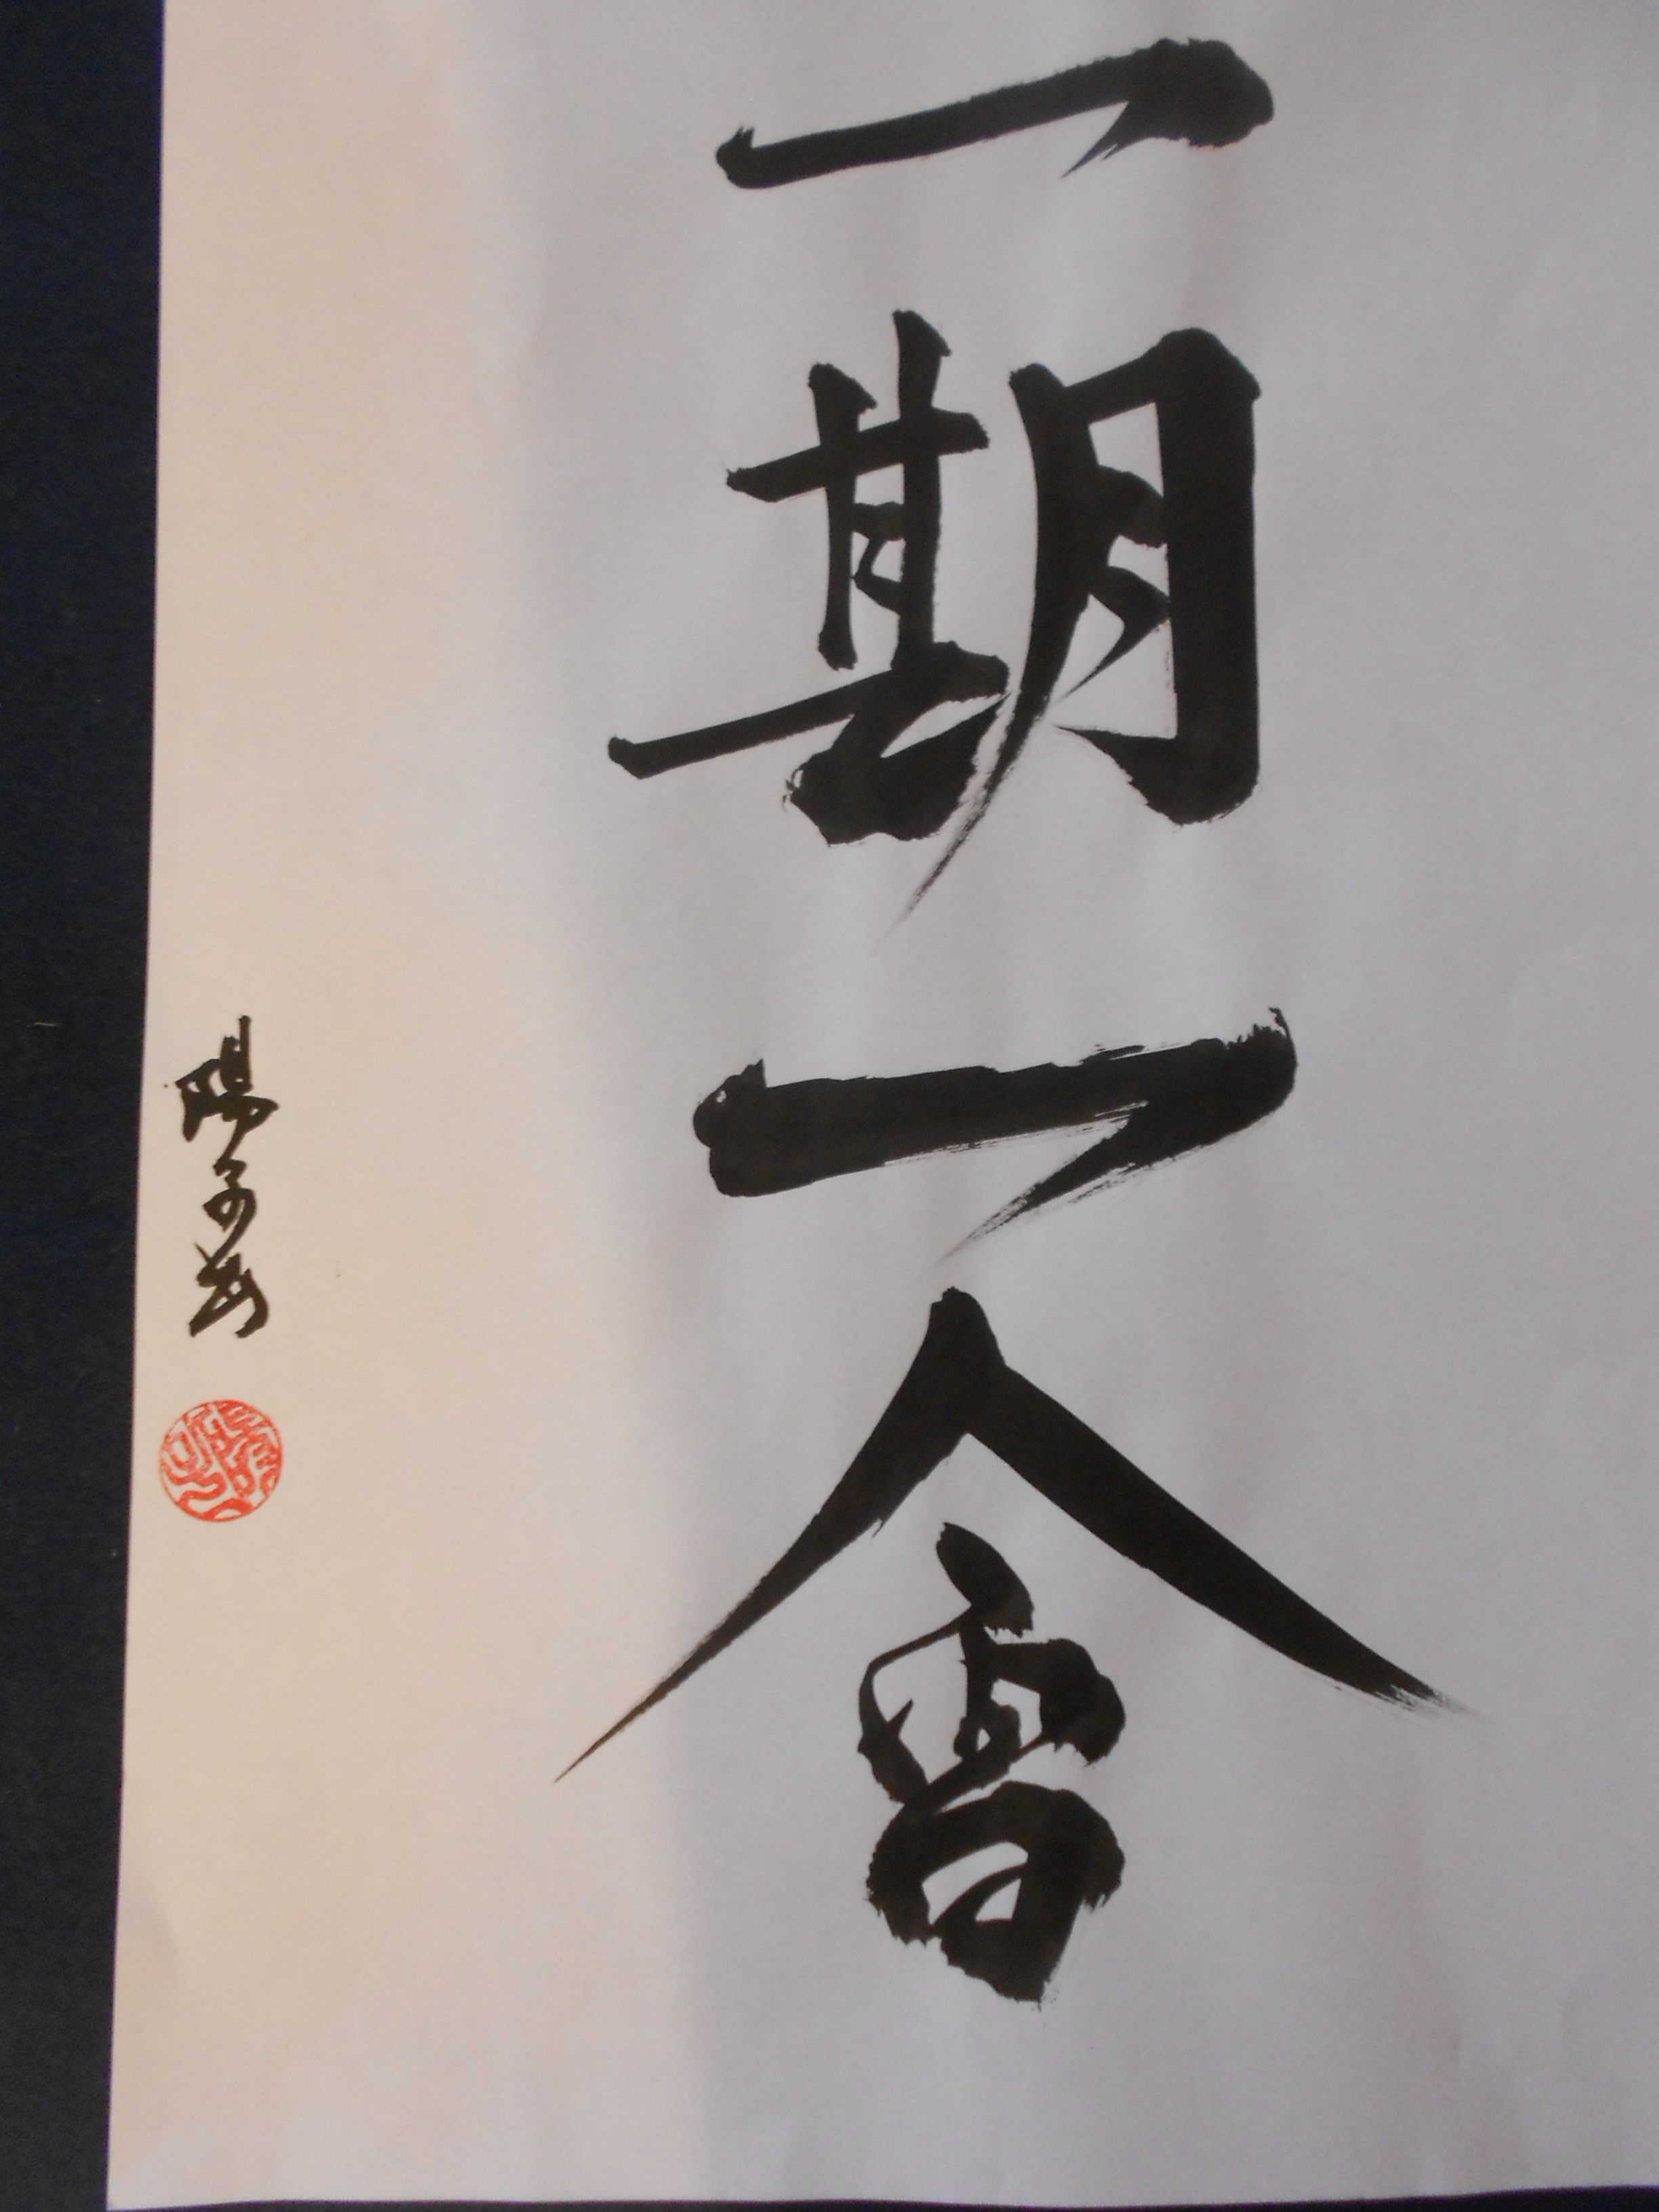 一期一會
陽子書